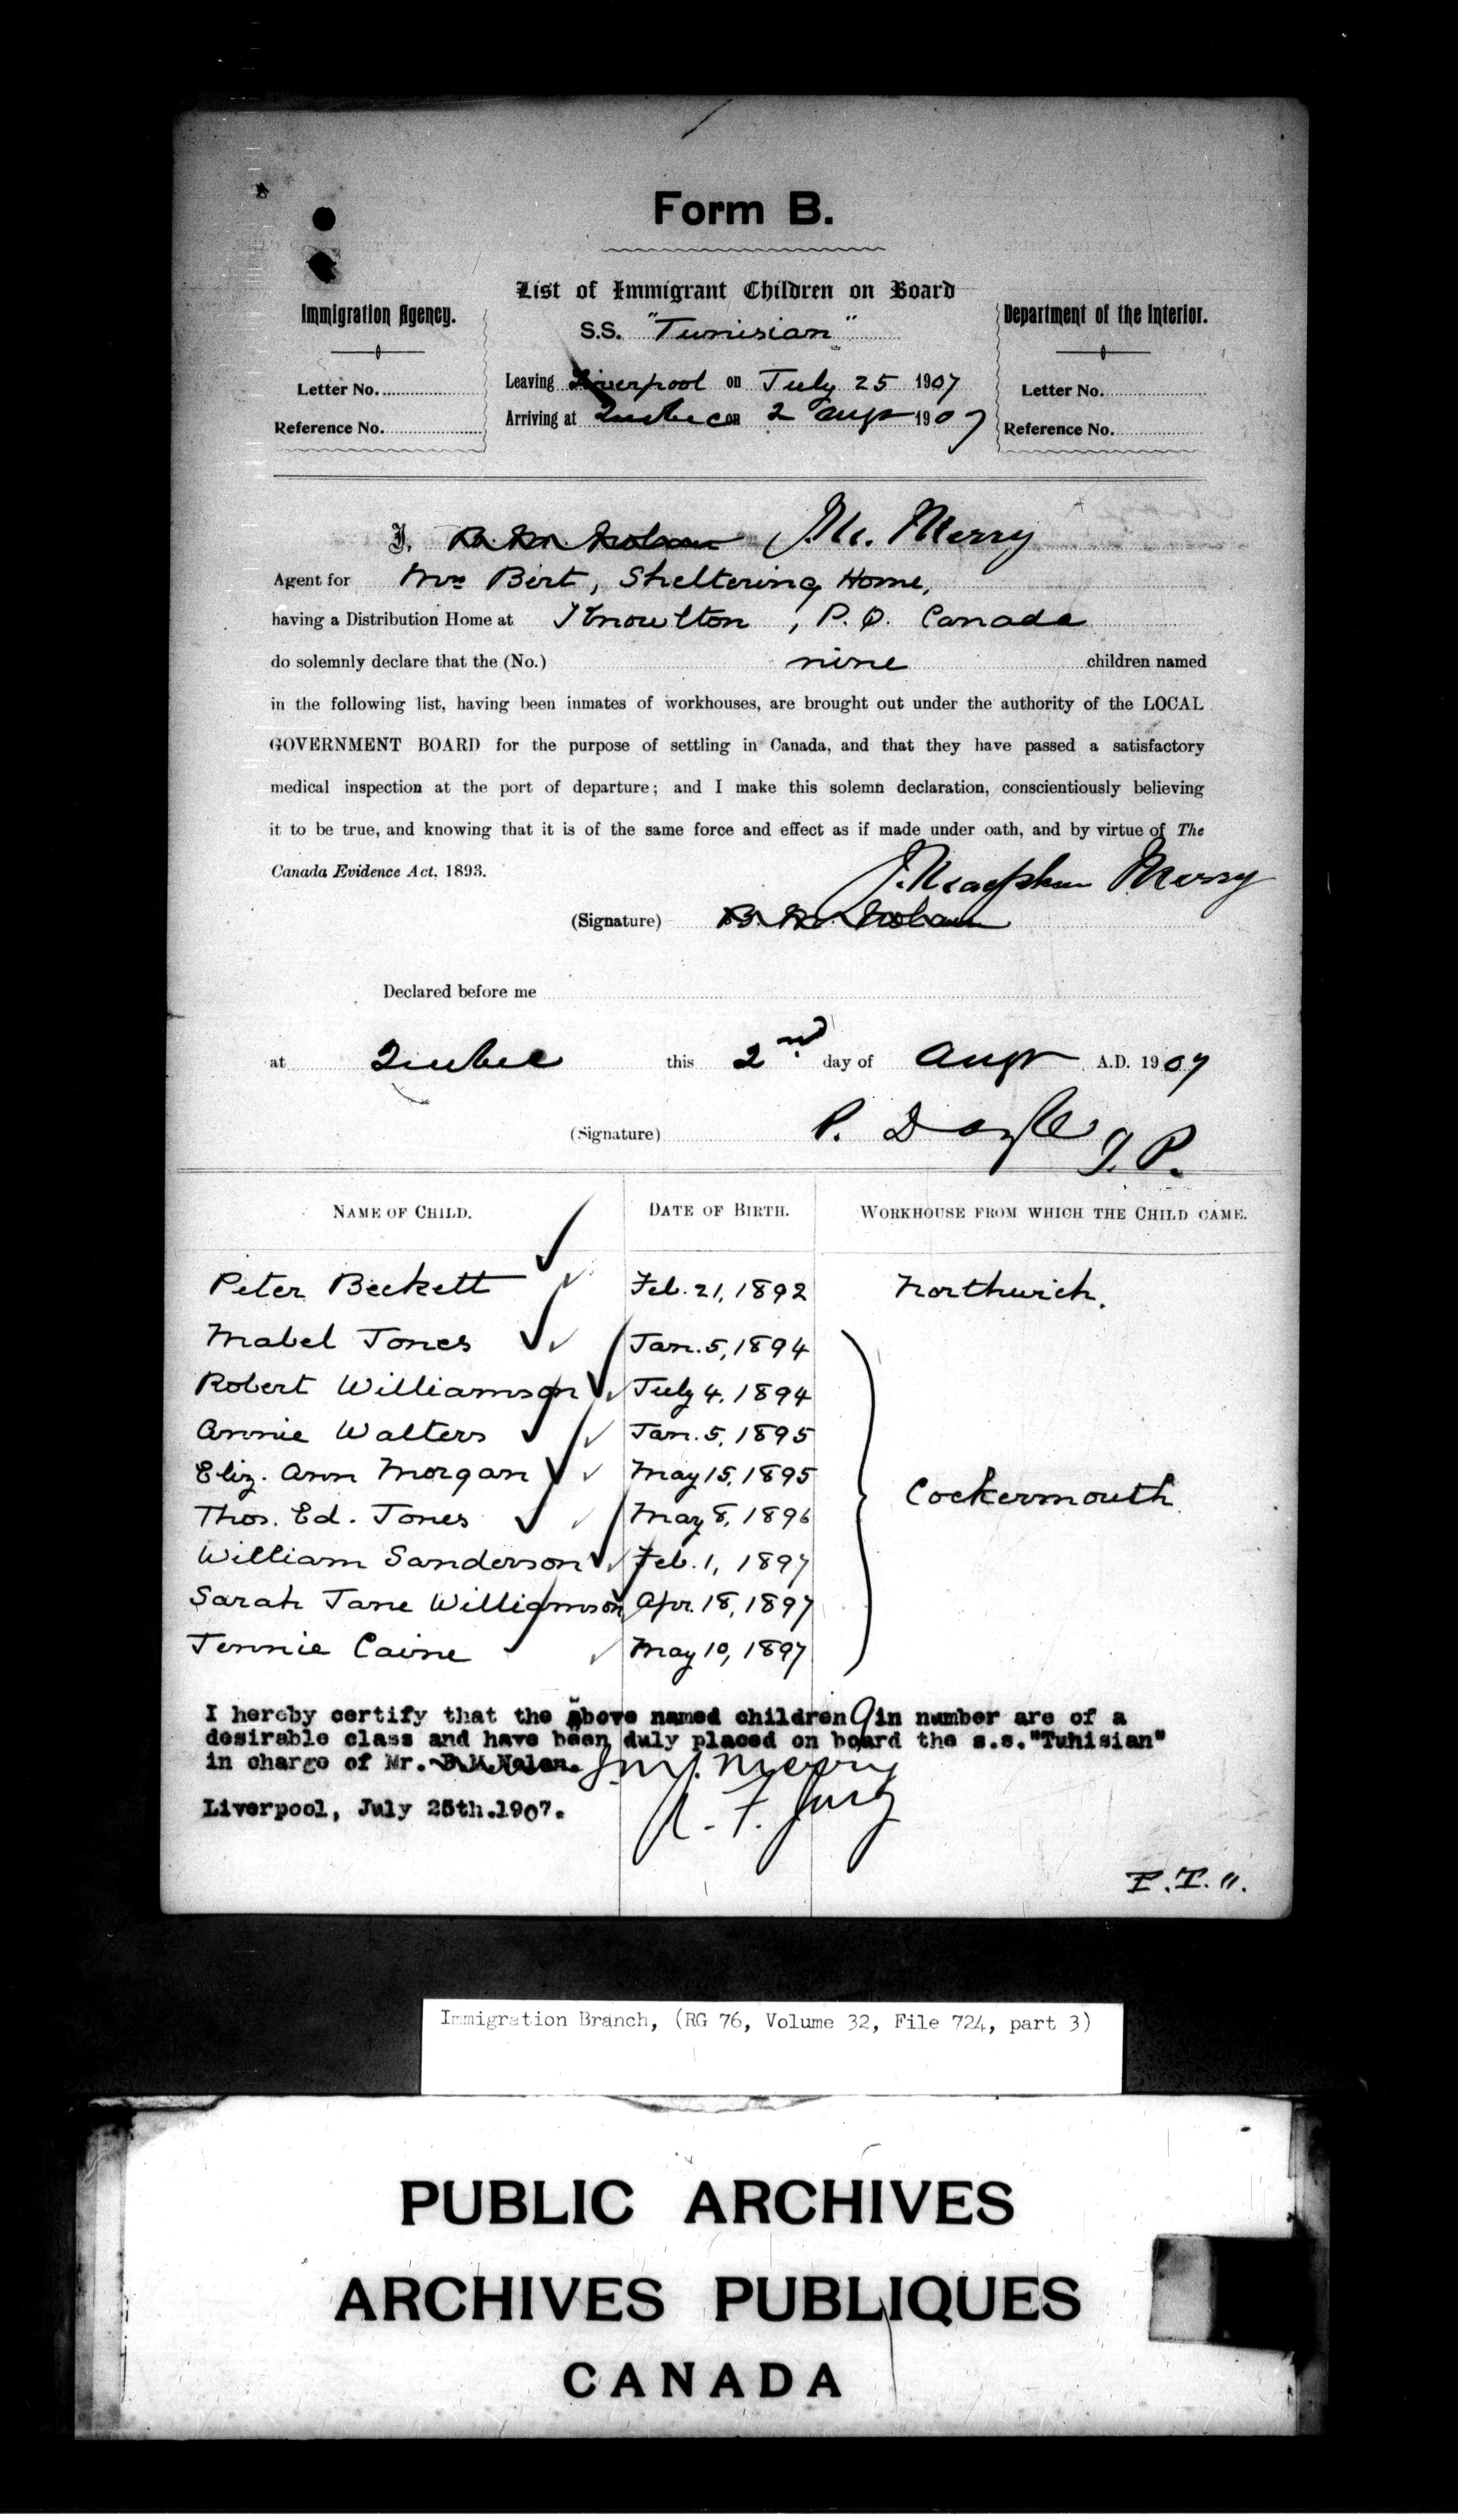 Form B.
List of Immigrant Children on Board
S.S. "Tunisian"
Immigration Agency.
Letter No.
Reference No.
Leaving Liverpool on July 25 1907
Arriving at Quebec on 2 Augt 1907
Department of the Interior.
Letter No.
Reference No.
I, J. M. Merry
Agent for Mrs Birt, Sheltering Home,
having a Distribution Home at Knowlton, P.Q. Canada
do solemnly declare that the (No.) nine children named
in the following list, having been inmates of workhouses, are brought out under the authority of the LOCAL
GOVERNMENT BOARD for the purpose of settling in Canada, and that they have passed a satisfactory
medical inspection at the port of departure; and I make this solemn declaration, conscientiously believing
it to be true, and knowing that it is of the same force and effect as if made under oath, and by virtue of The
Canada Evidence Act, 1893.
J. Macphun Merry
(Signature)
Declared before me
at Quebec this 2nd day of Augt A.D. 1907
(Signature) P. Doyle J.P.
NAME OF CHILD. DATE OF BIRTH. WORKHOUSE FROM WHICH THE CHILD CAME.
Peter Beckett Feb. 21, 1892 Northwich.
Mabel Jones Jan. 5, 1894
Robert Williamson July 4, 1894
Annie Walters Jan. 5, 1895
Eliz. Ann Morgan May 15, 1895
Cockermouth
Thos. Ed. Jones May 8, 1896
William Sanderson Feb. 1, 1897
Sarah Jane Williamson Apr. 18, 1897
Jennie Caine May 10, 1897
I hereby certify that the above named children 9 in number are of a
desirable class and have been duly placed on board the s.s. "Tunisian"
in charge of Mr. B.M.Nolan. J. M. Merry
Liverpool, July 25th.1907.
Immigration Branch, (RG 76, Volume 32, File 724, part 3)
PUBLIC ARCHIVES
ARCHIVES PUBLIQUES
CANADA